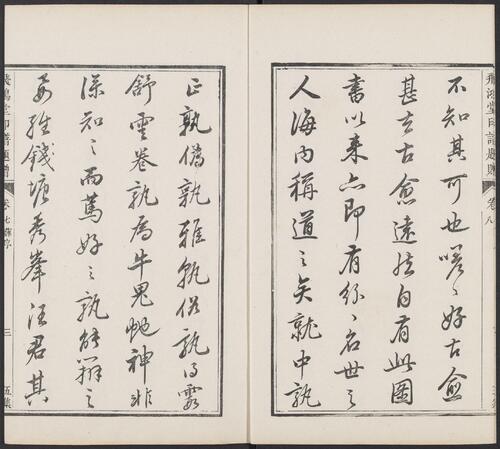 飛鴻堂印譜題贈 卷八
不知其可也嗟〻好古愈
甚去古愈遠然自有此圖
書以來亦即有〻名世之
人海内稱道之矣就中孰
正孰僞孰雅孰俗孰得霞
舒雲卷孰爲牛鬼虵神非
深知之而篤好之孰能辨之
維錢塘秀峯汪君其
飛鴻堂印譜 卷七 序 三 五集